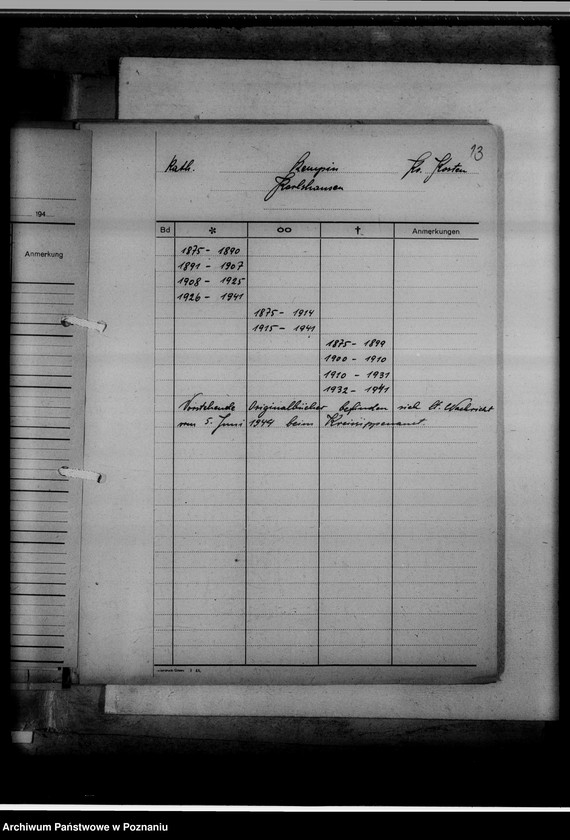 13
Kath. Czempin Kr. Kosten
Karlshausen
194
Anmerkung
Bd * ∞ † Anmerkungen
1875 - 1890
1891 - 1907
1908 - 1925
1926 - 1941
1875 - 1914
1915 - 1941
1875 - 1899
1900 - 1910
1910 - 1931
1932 - 1941
Vorstehende Originalbücher befinden sich lt. Nachricht
vom 5. Juni 1944 beim Kreissippenamt.
Archiwum Państwowe w Poznaniu